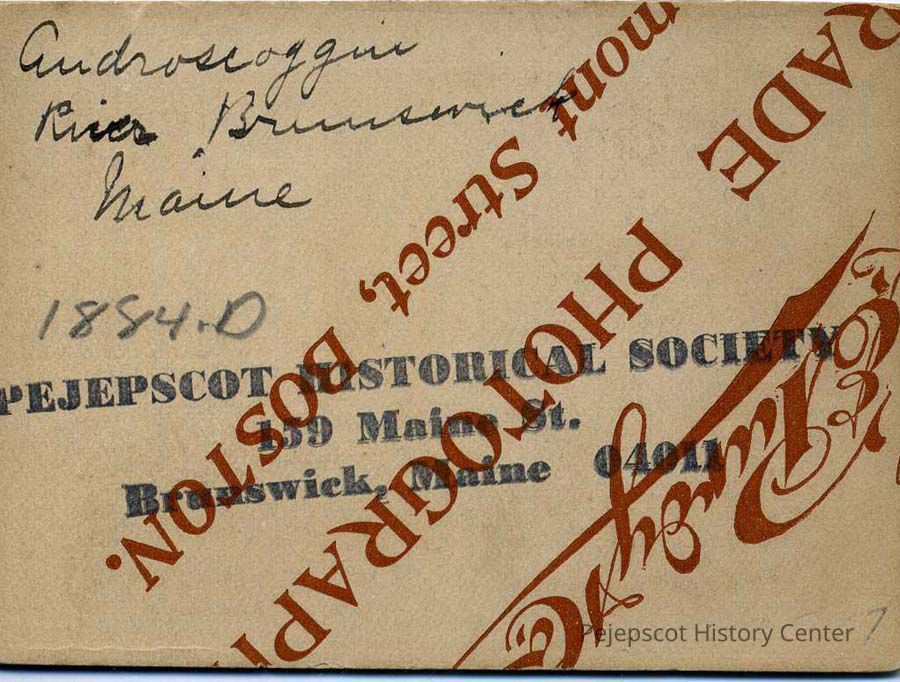 Androscoggin
River Brunswick
Maine
1884.D
PEJEPSCOT HISTORICAL SOCIETY
159 Maine St.
Brunswick, Maine 04011
RADE
PHOTOGRAPH
mont Street, BOSTON.
Purdy &
Pejepscot History Center
7